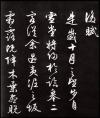 後賦
是歲十月之望步自
雪堂將歸于臨皋二
客從余過黃泥之坂
霜露既降木葉盡脫